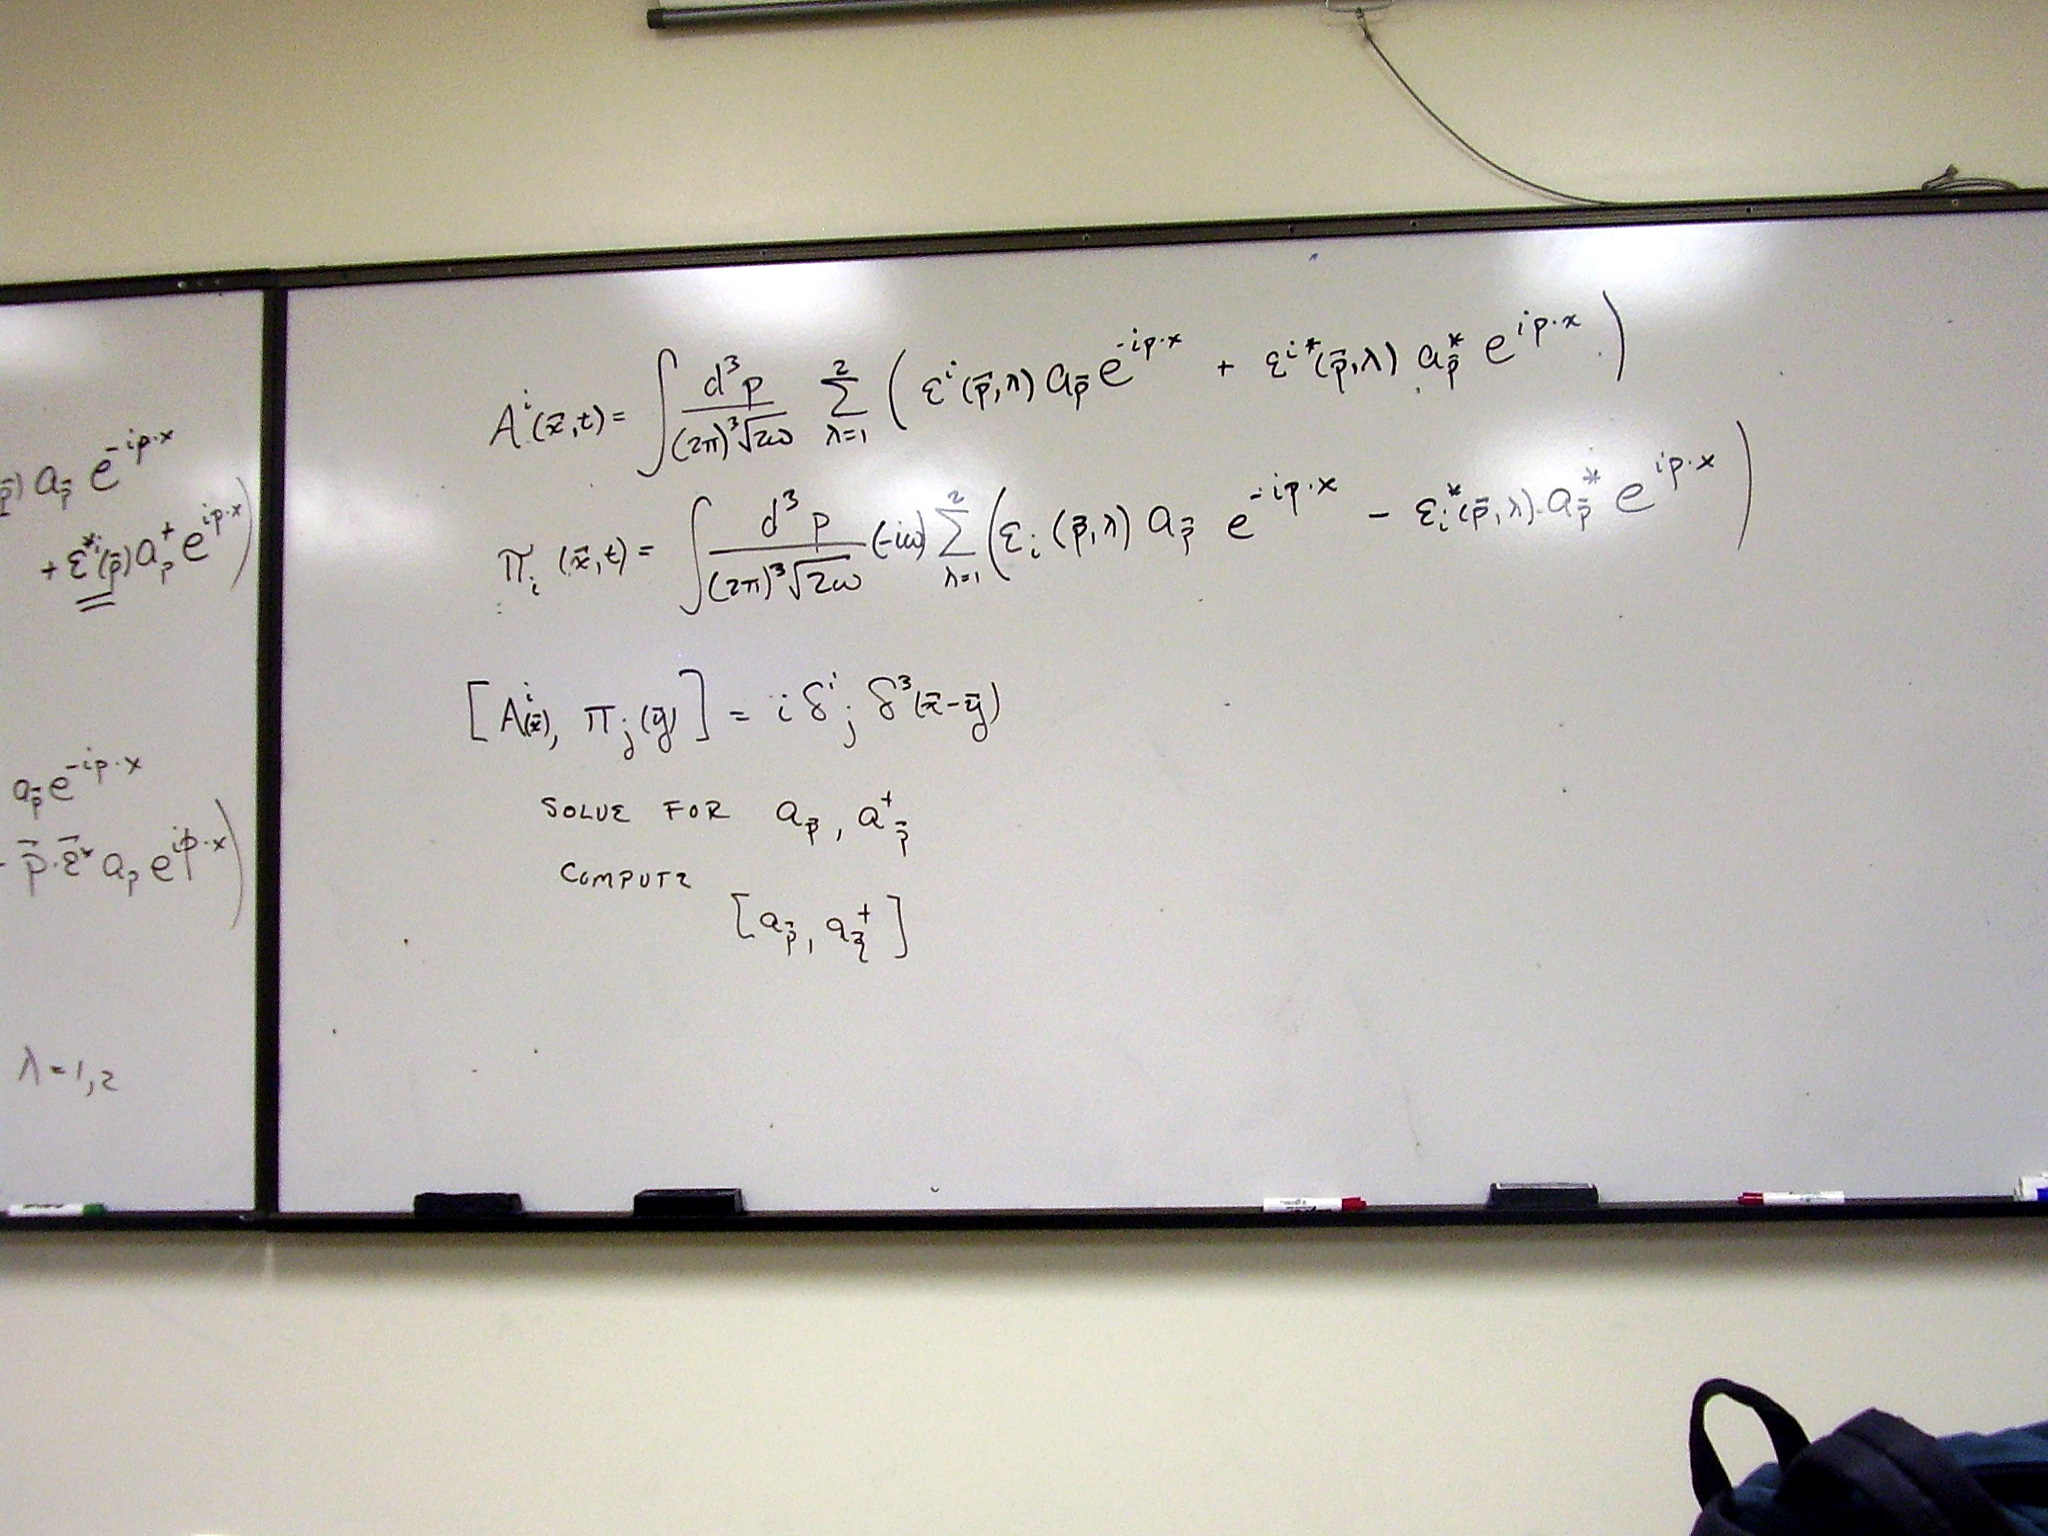 p⃗) a_p⃗ e^{-ip·x}
+ ε^{*i}(p⃗) a_p^† e^{ip·x})
a_p⃗ e^{-ip·x}
- p⃗·ε⃗* a_p e^{ip·x})
λ = 1,2
A^i(x⃗,t) = ∫ d³p / ((2π)³√2ω) Σ_{λ=1}^{2} ( ε^i(p⃗,λ) a_p⃗ e^{-ip·x} + ε^{i*}(p⃗,λ) a_p⃗^* e^{ip·x} )
π_i(x⃗,t) = ∫ d³p / ((2π)³√2ω) (-iω) Σ_{λ=1}^{2} ( ε_i(p⃗,λ) a_p⃗ e^{-ip·x} - ε_i^*(p⃗,λ) a_p⃗^* e^{ip·x} )
[A^i(x⃗), π_j(y⃗)] = i δ^i_j δ³(x⃗-y⃗)
SOLVE FOR a_p⃗, a^†_p⃗
COMPUTE
[a_p⃗, a_q⃗^†]